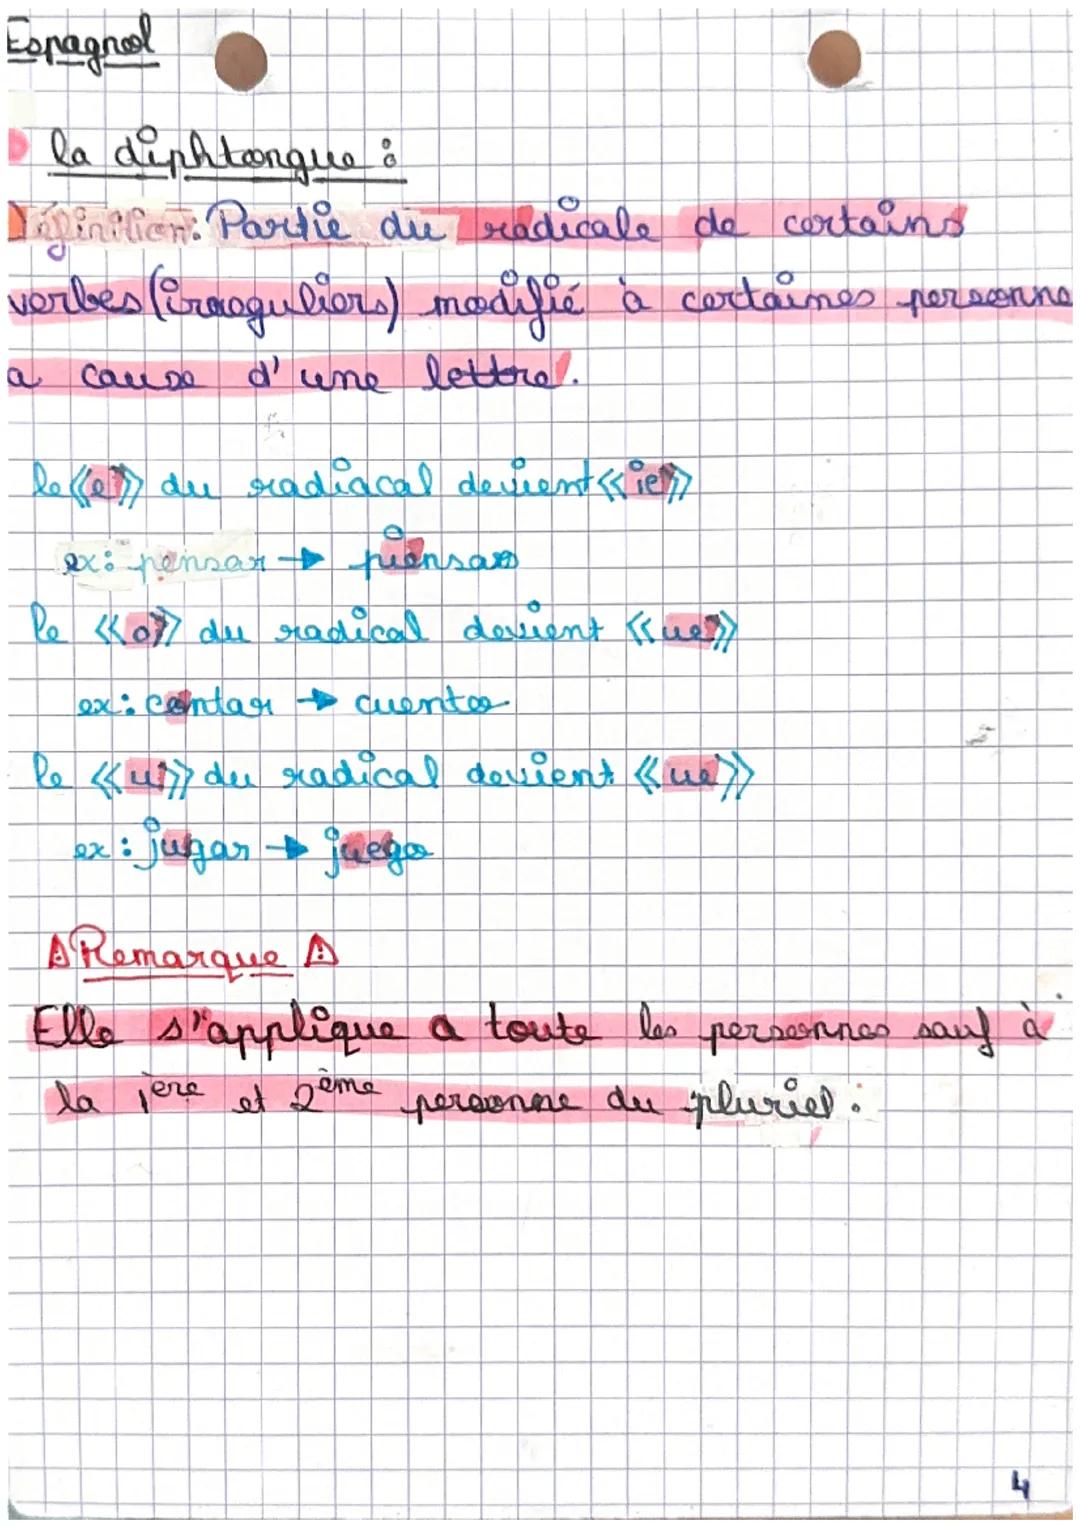 Espagnol
la diphtongue :
Définition: Partie du radicale de certains
verbes (irreguliers) modifié à certaines personne
a cause d'une lettre.
le «e» du radiacal devient «ie»
ex: pensar → piensas
le «o» du radical devient «ue»
ex: contar → cuento
le «u» du radical devient «ue»
ex: jugar → juego
⚠ Remarque ⚠
Elle s'applique a toute les personnes sauf à
la 1ère et 2ème personne du pluriel.
4